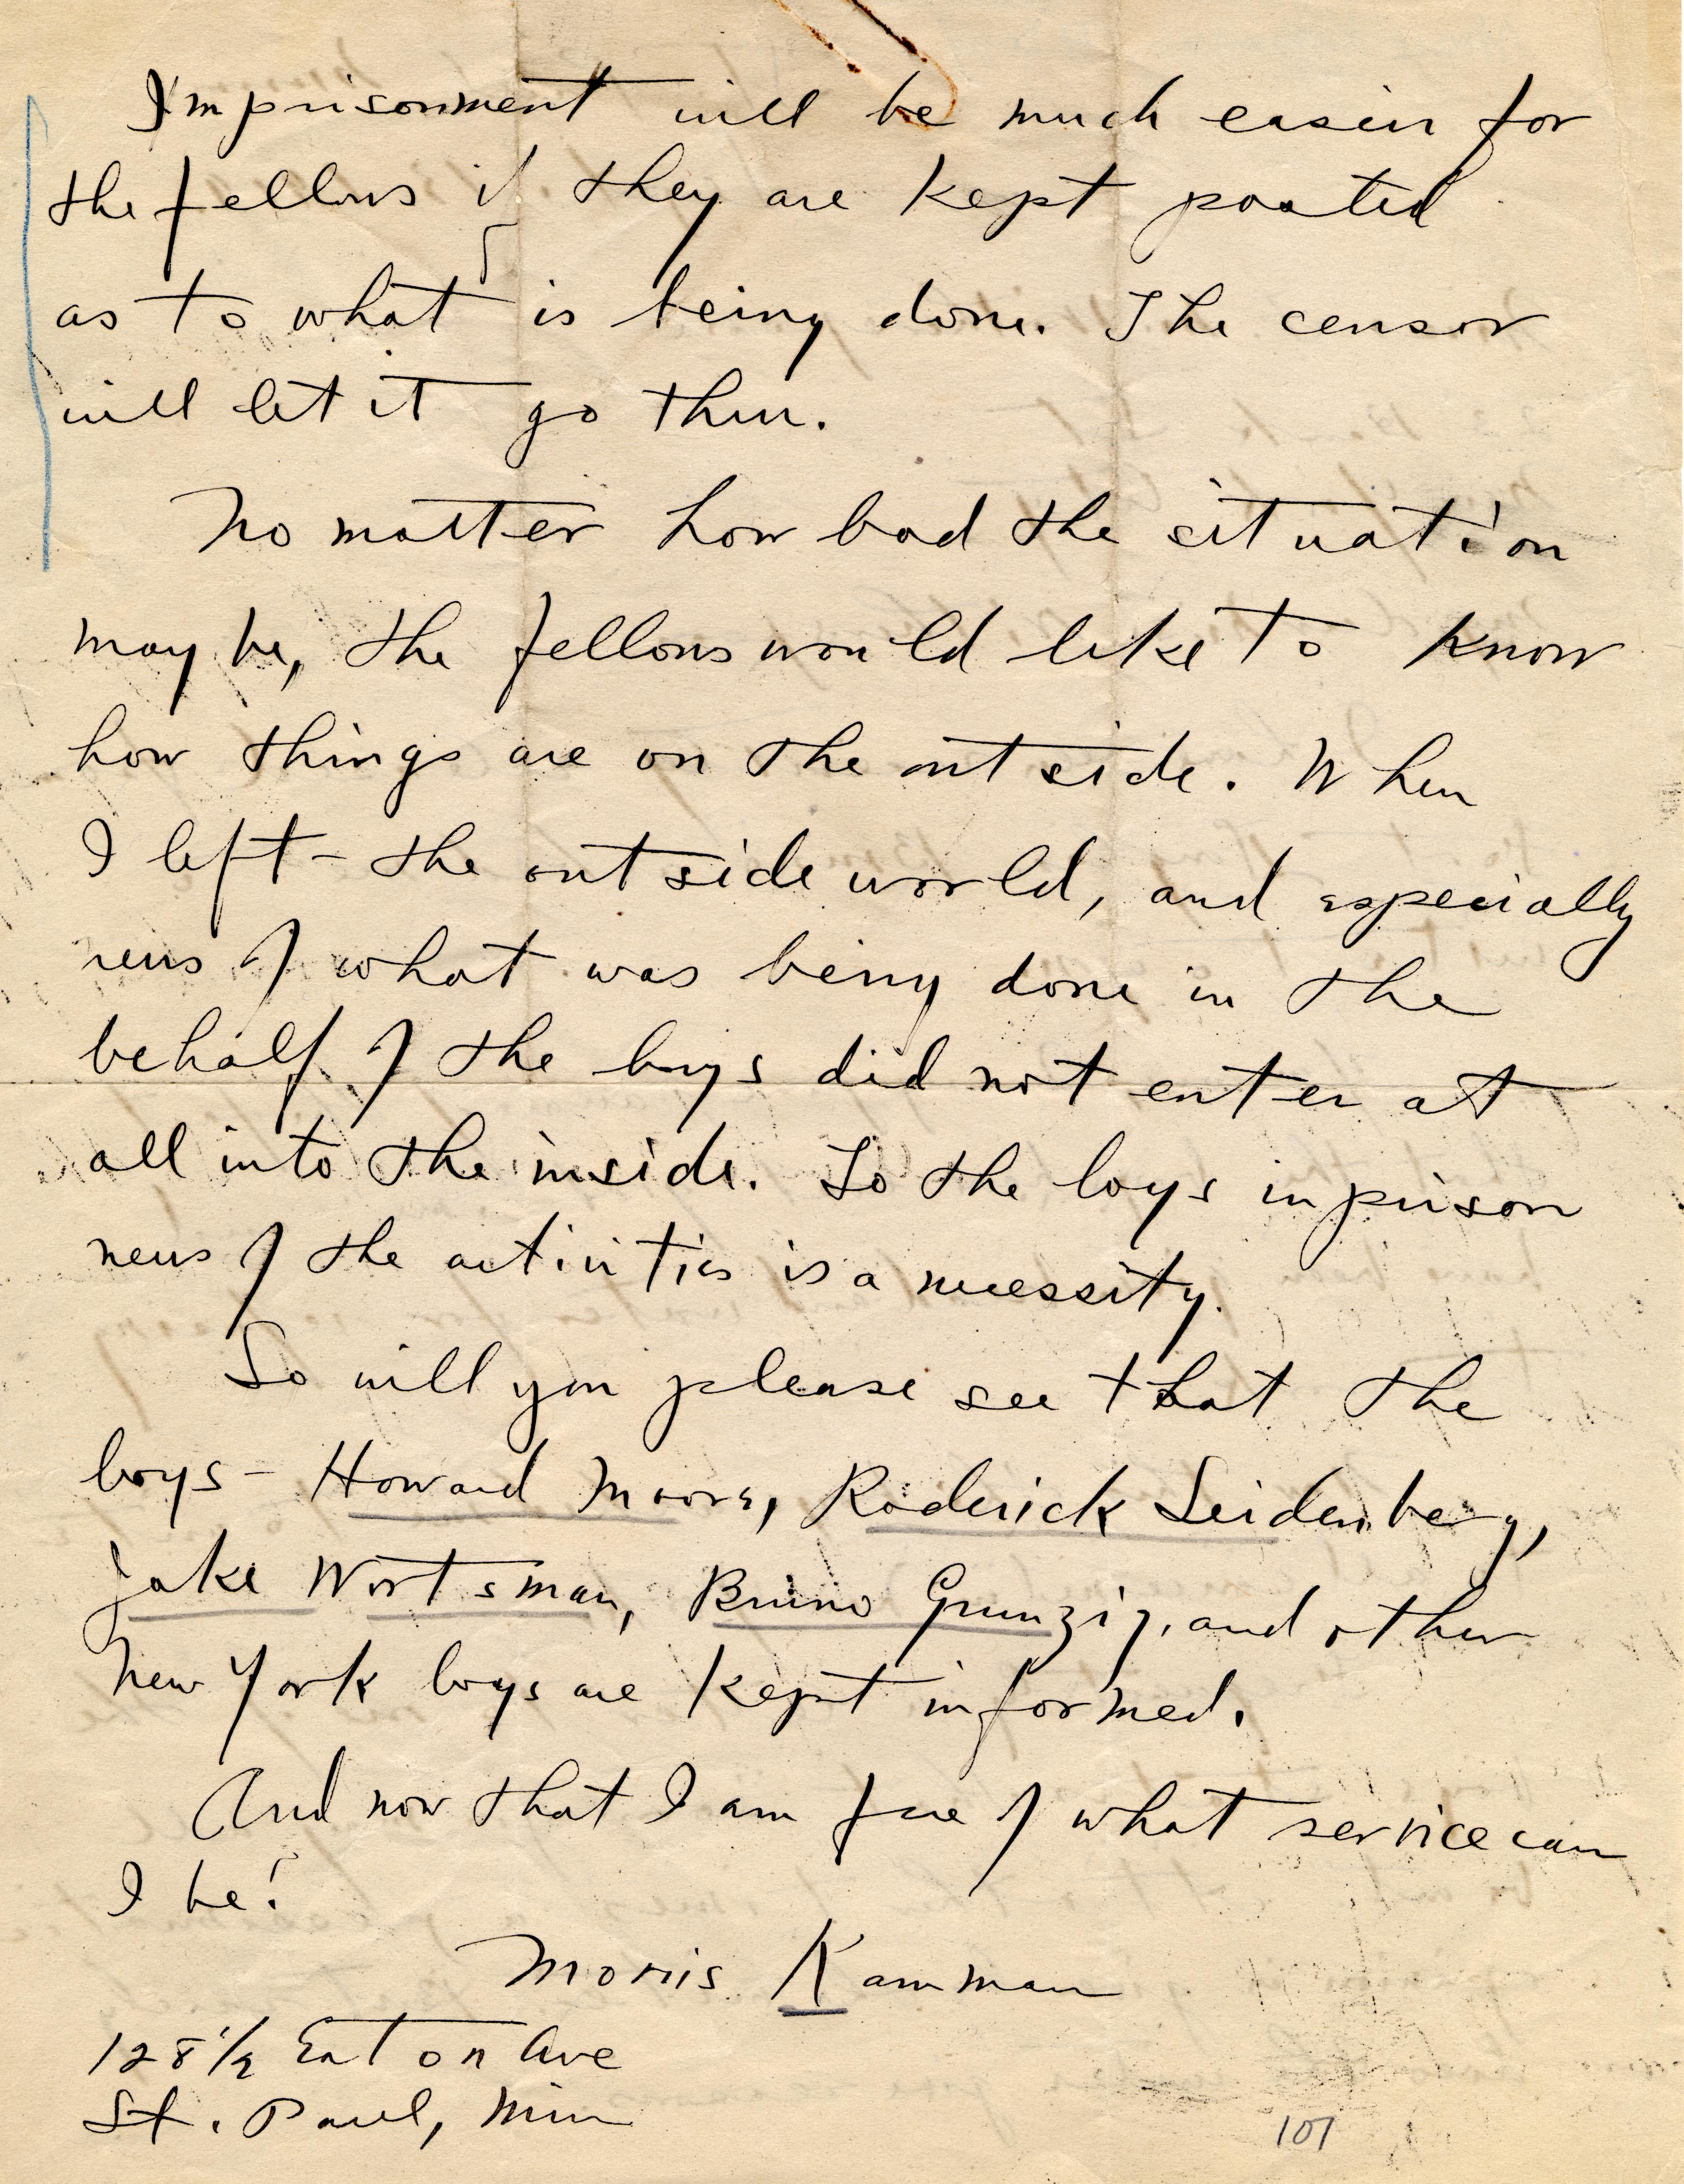 Imprisonment will be much easier for
the fellows if they are kept posted
as to what is being done. The censor
will let it go thru.
No matter how bad the situation
may be, the fellows would like to know
how things are on the outside. When
I left - the outside world, and especially
news of what was being done in the
behalf of the boys did not enter at
all into the inside. To the boys in prison
news of the activities is a necessity.
So will you please see that the
boys - Howard Moore, Roderick Seidenberg,
Jake Wortsman, Bruno Grunzig, and other
New York boys are kept informed.
And now that I am free of what service can
I be?
Morris Kamman
128 1/2 Eaton Ave
St. Paul, Minn
107